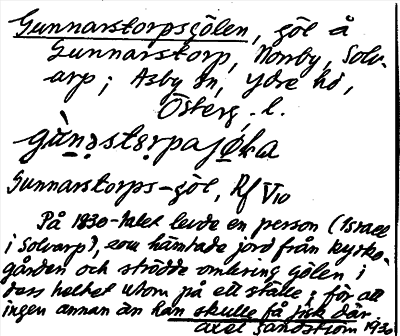 Gunnarstorpsgölen, göl å
Gunnarstorp, Norrby, Solv-
arp; Asby sn, Ydre hd,
Österg. l.
gùnəstərpajø̄ka
Gunnarstorps-göl, Rf V10
På 1830-talet levde en person (Israel
i Solvarp), som hämtade jord från kyrko-
gården och strödde omkring gölen i
dess helhet utom på ett ställe; för att
ingen annan än han skulle få fisk där
Axel Sandström 1930